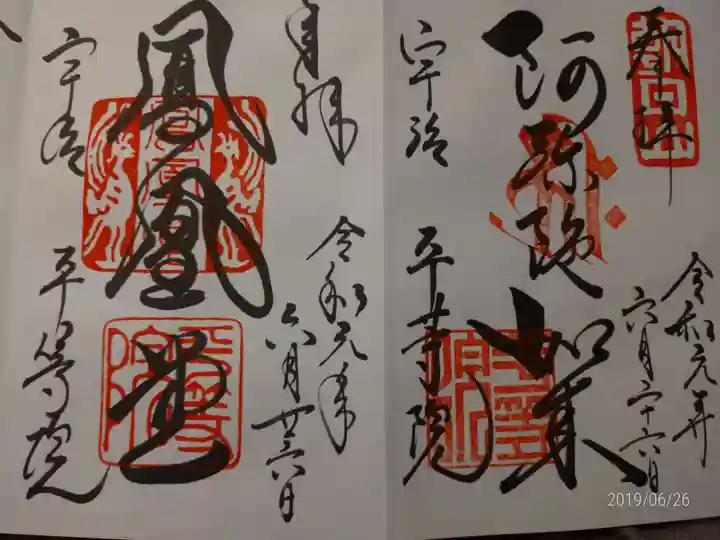 奉拝
阿弥陀如来
宇治
平等院
令和元年
六月二十六日
奉拝
鳳凰堂
宇治
平等院
令和元年
六月廿六日
2019/06/26